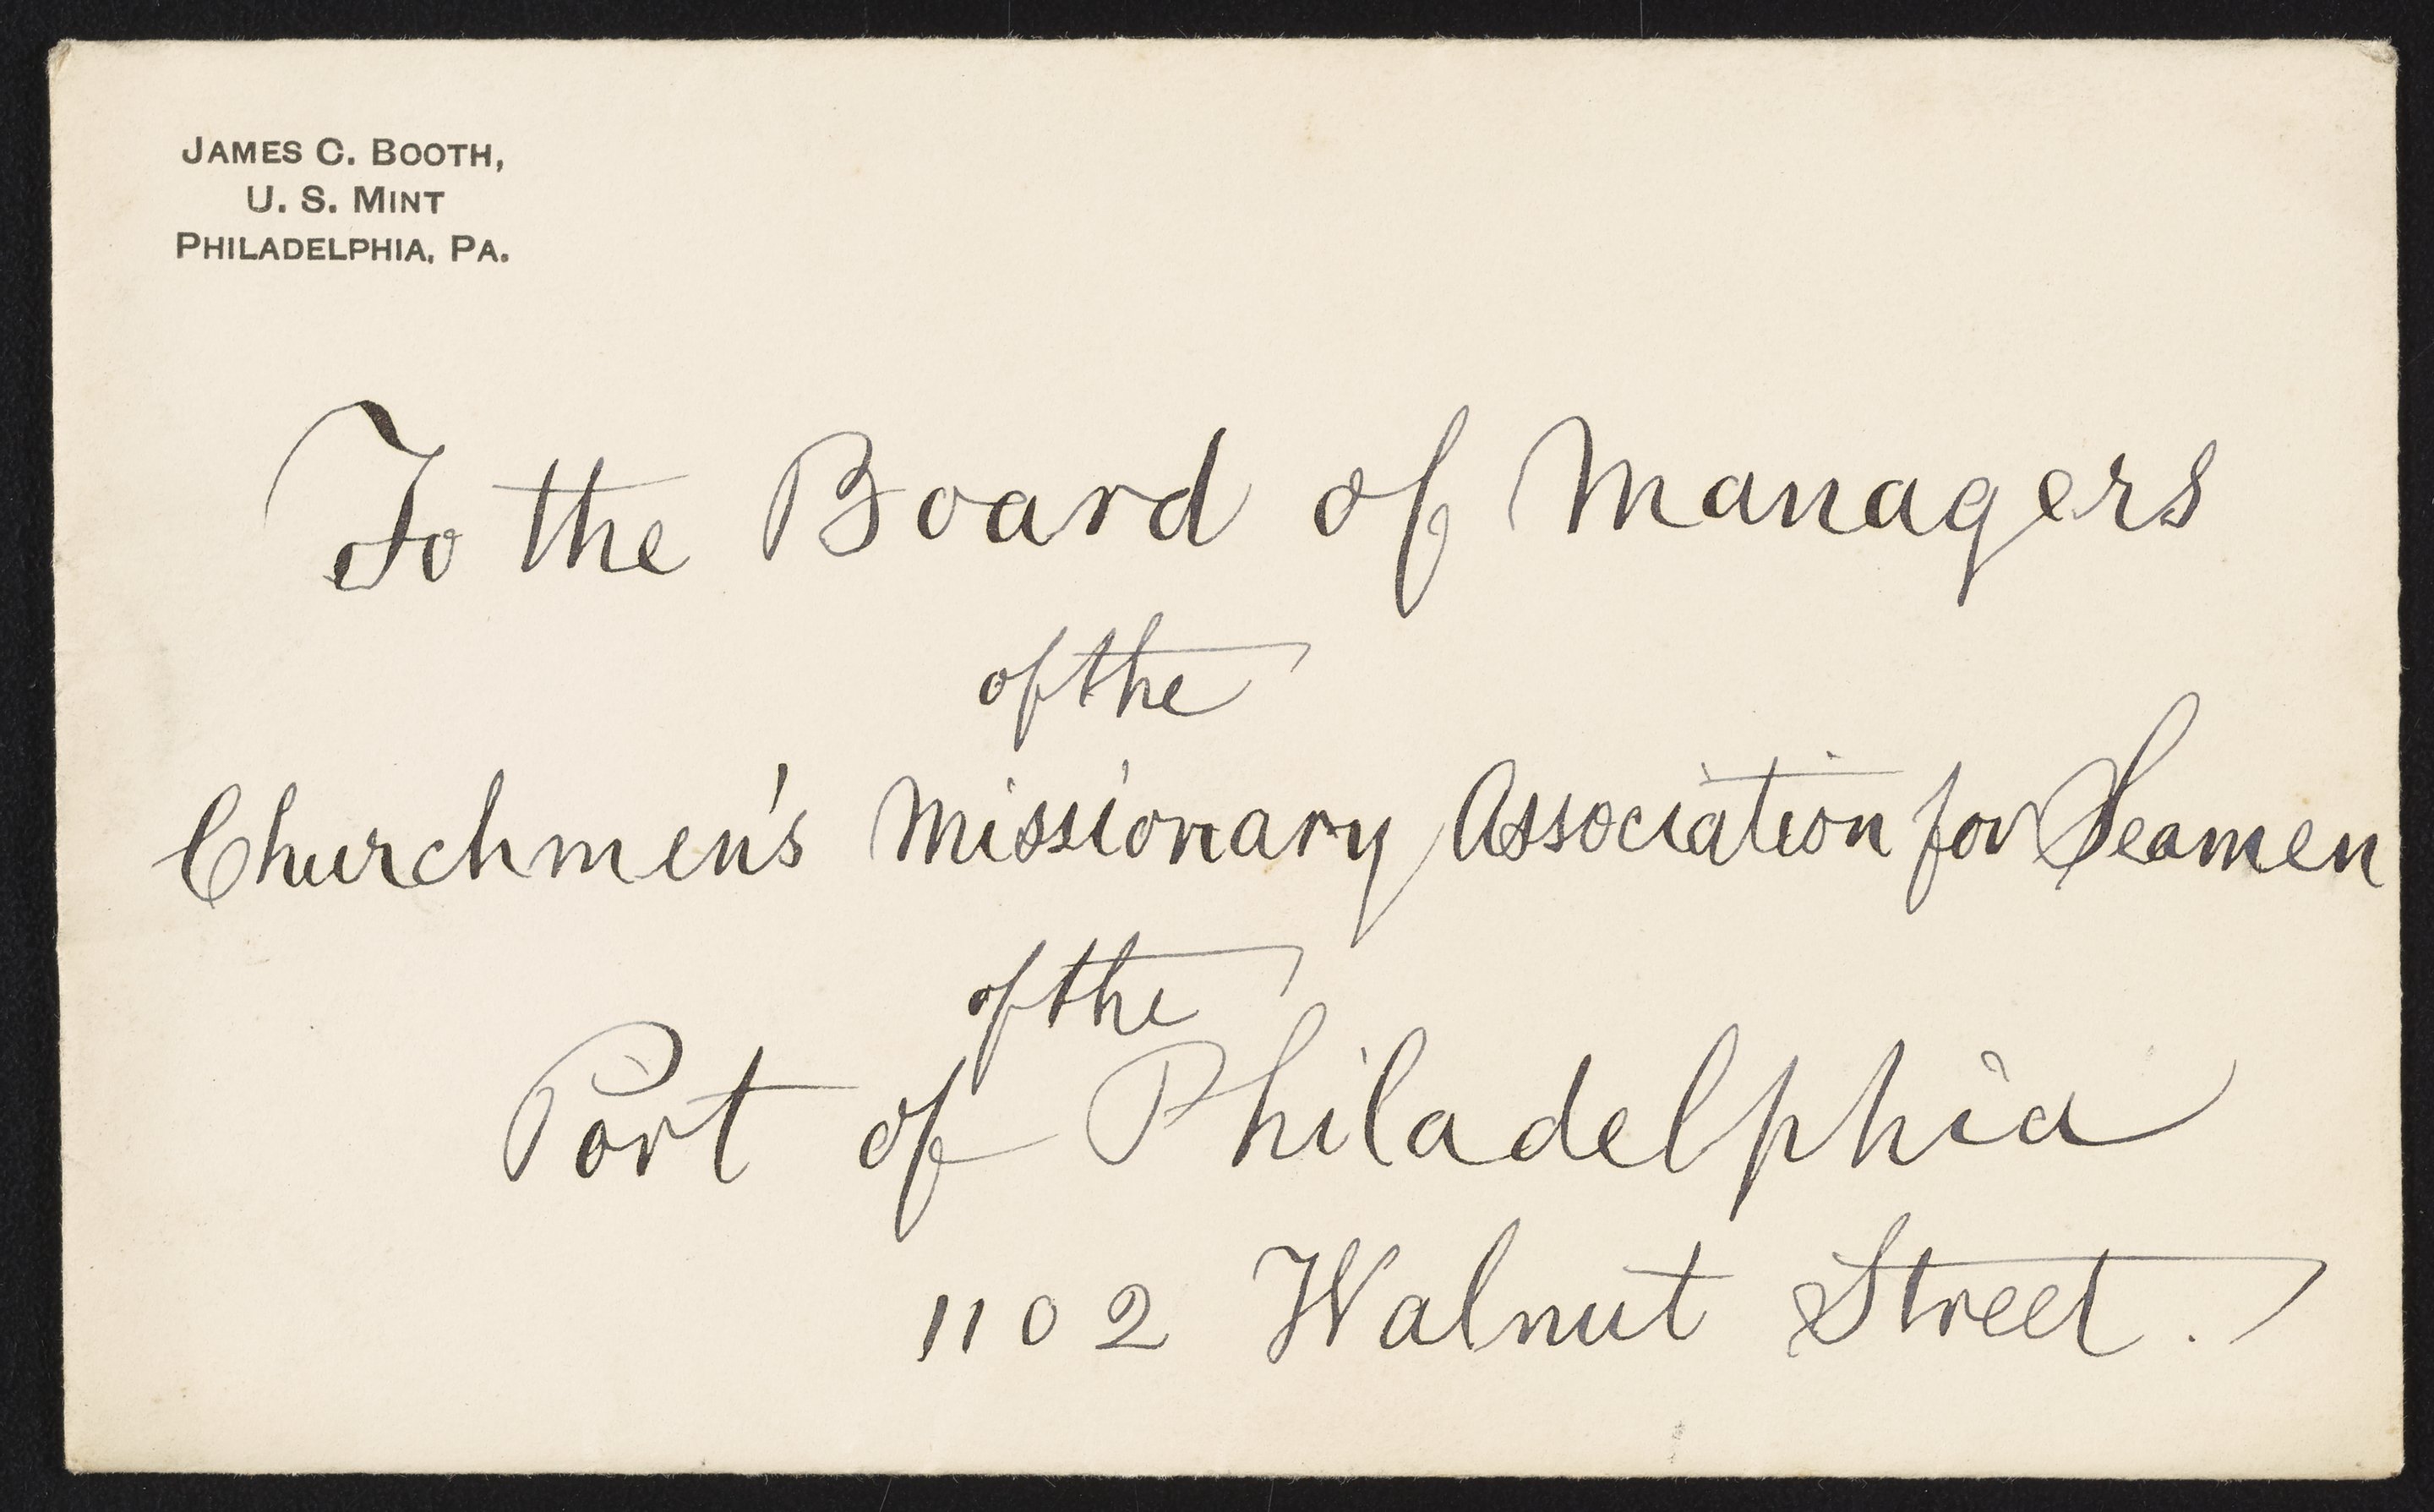 JAMES C. BOOTH,
U. S. MINT
PHILADELPHIA, PA.
To the Board of Managers
of the
Churchmen's Missionary Association for Seamen
of the
Port of Philadelphia
1102 Walnut Street.